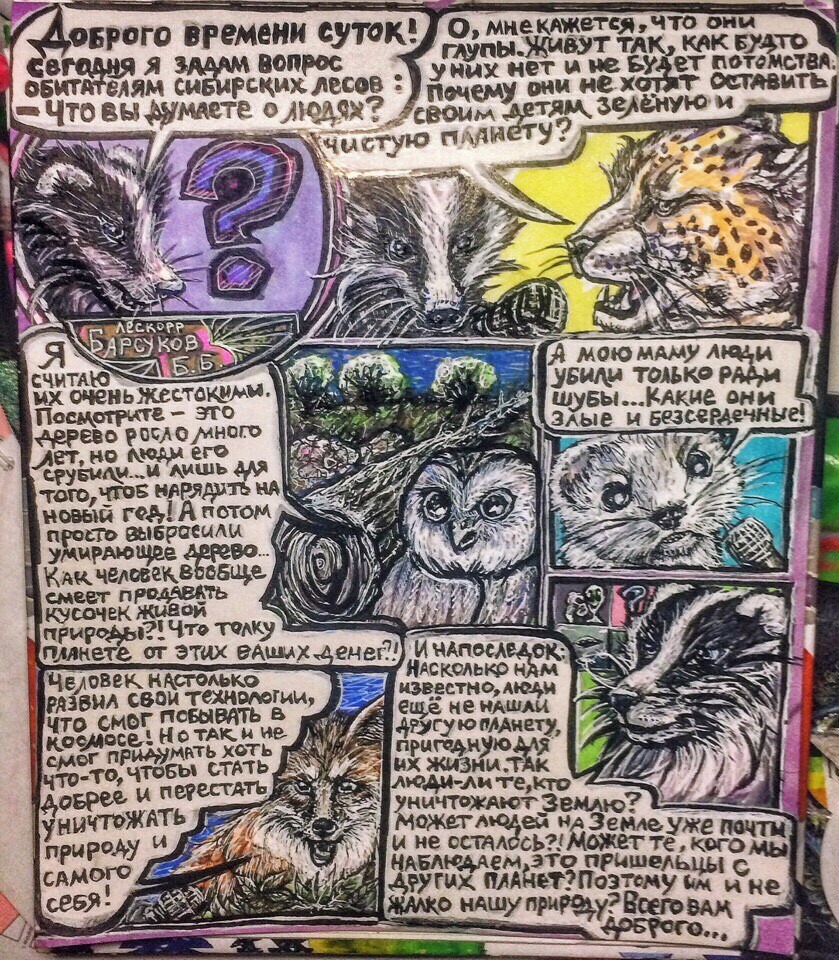 Доброго времени суток!
Сегодня я задам вопрос
обитателям сибирских лесов:
– Что вы думаете о людях?
О, мне кажется, что они
глупы. Живут так, как будто
у них нет и не будет потомства.
Почему они не хотят оставить
своим детям зелёную и
чистую планету?
Лескорр
Барсуков
Б.Б.
Я
считаю
их очень жестокими.
Посмотрите – это
дерево росло много
лет, но люди его
срубили...и лишь для
того, чтоб нарядить на
новый год! А потом
просто выбросили
умирающее дерево...
Как человек вообще
смеет продавать
кусочек живой
природы?! Что толку
планете от этих ваших денег?!
А мою маму люди
убили только ради
шубы...Какие они
злые и безсердечные!
Человек настолько
развил свои технологии,
что смог побывать в
космосе! Но так и не
смог придумать хоть
что-то, чтобы стать
добрее и перестать
уничтожать
природу и
самого
себя!
И напоследок.
Насколько нам
известно, люди
ещё не нашли
другую планету,
пригодную для
их жизни. Так
люди-ли те, кто
уничтожают Землю?
Может людей на Земле уже почти
и не осталось?! Может те, кого мы
наблюдаем, это пришельцы с
других планет? Поэтому им и не
жалко нашу природу? Всего вам
доброго...